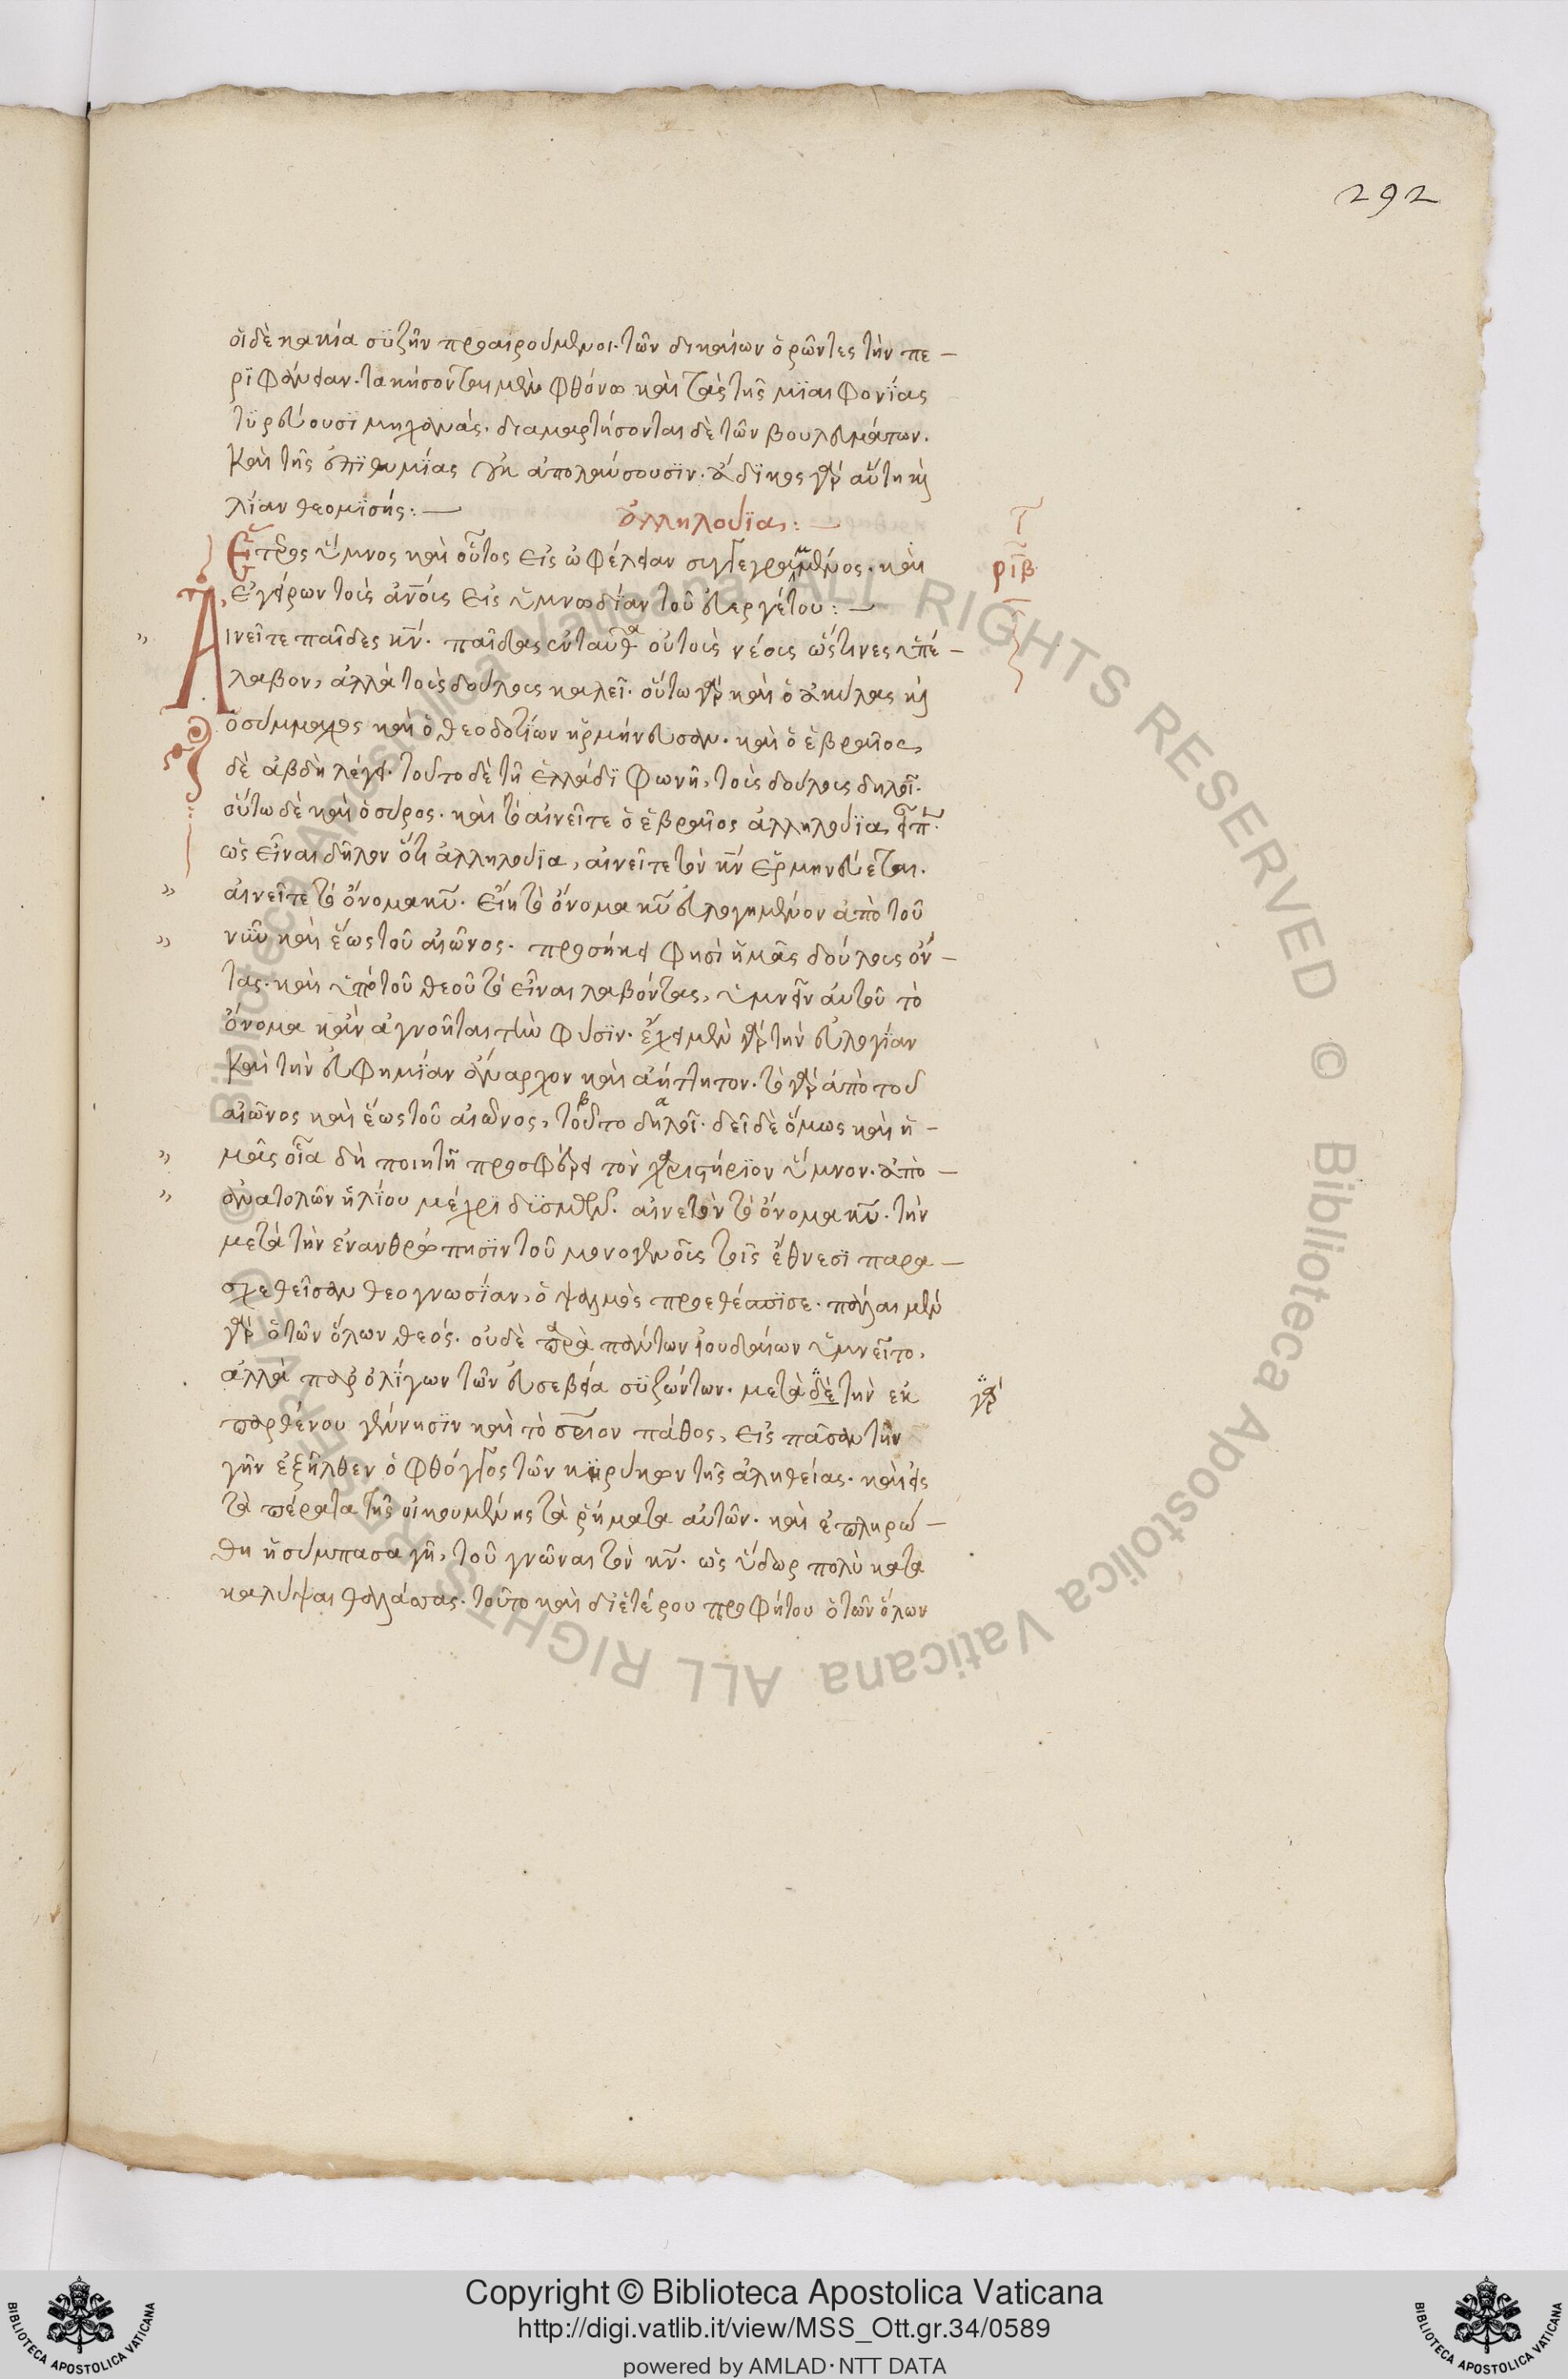 292
οἱ δὲ κακία συζῆν προαιρούμενοι. τῶν δικαίων ὁρῶντες τὴν πε-
ριφάνειαν. τακήσονται μὲν φθόνω καὶ τὰς τῆς μιαιφονίας
τυρεύουσι μηχανάς. διαμαρτήσονται δὲ τῶν βουλευμάτων.
καὶ τῆς ἐπιθυμίας οὐκ ἀπολαύσουσιν. ἄδικος γὰρ αὕτη καὶ
λίαν θεομισής:—
ἀλληλούϊα:—
ριβ
Ἕτερος ὕμνος καὶ οὗτος εἰς ὠφέλειαν συγγεγραμμένος. καὶ
ἐγείρων τοὺς ἀνοις εἰς ὑμνωδίαν τοῦ εὐεργέτου:—
Αἰνεῖτε παῖδες κν. παῖδας ἐνταῦθα οὐ τοὺς νέους ὥς τινες ὑπέ-
λαβον, ἀλλὰ τοὺς δούλους καλεῖ. οὕτω γὰρ καὶ ὁ ἀκύλας καὶ
ὁ σύμμαχος καὶ ὁ θεοδοτίων ἡρμήνευσαν. καὶ ὁ ἑβραῖος
δὲ ἀβδὴ λέγει. τοῦτο δὲ τῆ ἑλλάδι φωνῆ, τοὺς δούλους δηλοῖ.
οὕτω δὲ καὶ ὁ σύρος. καὶ τὸ αἰνεῖτε ὁ ἑβραῖος ἀλληλούϊα εἶπε.
ὡς εἶναι δῆλον ὅτι ἀλληλούϊα, αἰνεῖτε τὸν κν ἑρμηνεύεται.
αἰνεῖτε τὸ ὄνομα κυ. εἴη τὸ ὄνομα κυ εὐλογημένον ἀπὸ τοῦ
νῦν καὶ ἕως τοῦ αἰῶνος. προσήκει φησὶ ἡμᾶς δούλους ὄν-
τας. καὶ ὑπὸ τοῦ θεοῦ τὸ εἶναι λαβόντας, ὑμνεῖν αὐτοῦ τὸ
ὄνομα κἂν ἀγνοῆται τὴν φύσιν. ἔχει μὲν γὰρ τὴν εὐλογίαν
καὶ τὴν εὐφημίαν ἄναρχον καὶ ἀήττητον. τὸ γὰρ ἀπὸ τοῦ
αἰῶνος καὶ ἕως τοῦ αἰῶνος, τοῦτο δηλοῖ. δεῖ δὲ ὅμως καὶ ἡ-
μᾶς οἷα δὴ ποιητῆ προσφέρει τὸν χαριστήριον ὕμνον. ἀπὸ
ἀνατολῶν ἡλίου μέχρι δυσμῶν. αἰνετὸν τὸ ὄνομα κυ. τὴν
μετὰ τὴν ἐνανθρώπησιν τοῦ μονογενοῦς τοῖς ἔθνεσι παρα-
σχεθεῖσαν θεογνωσίαν, ὁ ψαλμὸς προεθέσπισε. πάλαι μὲν
γὰρ ὁ τῶν ὅλων θεός. οὐδὲ παρὰ πάντων ἰουδαίων ὑμνεῖτο,
ἀλλὰ παρ' ὀλίγων τῶν εὐσεβεία συζώντων. μετὰ δὲ τὴν ἐκ
γὰρ
παρθένου γέννησιν καὶ τὸ σριον πάθος, εἰς πᾶσαν τὴν
γῆν ἐξῆλθεν ὁ φθόγγος τῶν κηρύκων τῆς ἀληθείας. καὶ εἰς
τὰ πέρατα τῆς οἰκουμένης τὰ ῥήματα αὐτῶν. καὶ ἐπληρώ-
θη ἡ σύμπασα γῆ, τοῦ γνῶναι τὸν κν. ὡς ὕδωρ πολὺ κατα
καλύψαι θαλάσσας. τοῦτο καὶ δι' ἑτέρου προφήτου ὁ τῶν ὅλων
© Biblioteca Apostolica Vaticana ALL RIGHTS RESERVED © Biblioteca Apostolica Vaticana ALL RIGHTS RESERVED
Copyright © Biblioteca Apostolica Vaticana
http://digi.vatlib.it/view/MSS_Ott.gr.34/0589
powered by AMLAD·NTT DATA
BIBLIOTECA APOSTOLICA VATICANA
BIBLIOTECA APOSTOLICA VATICANA